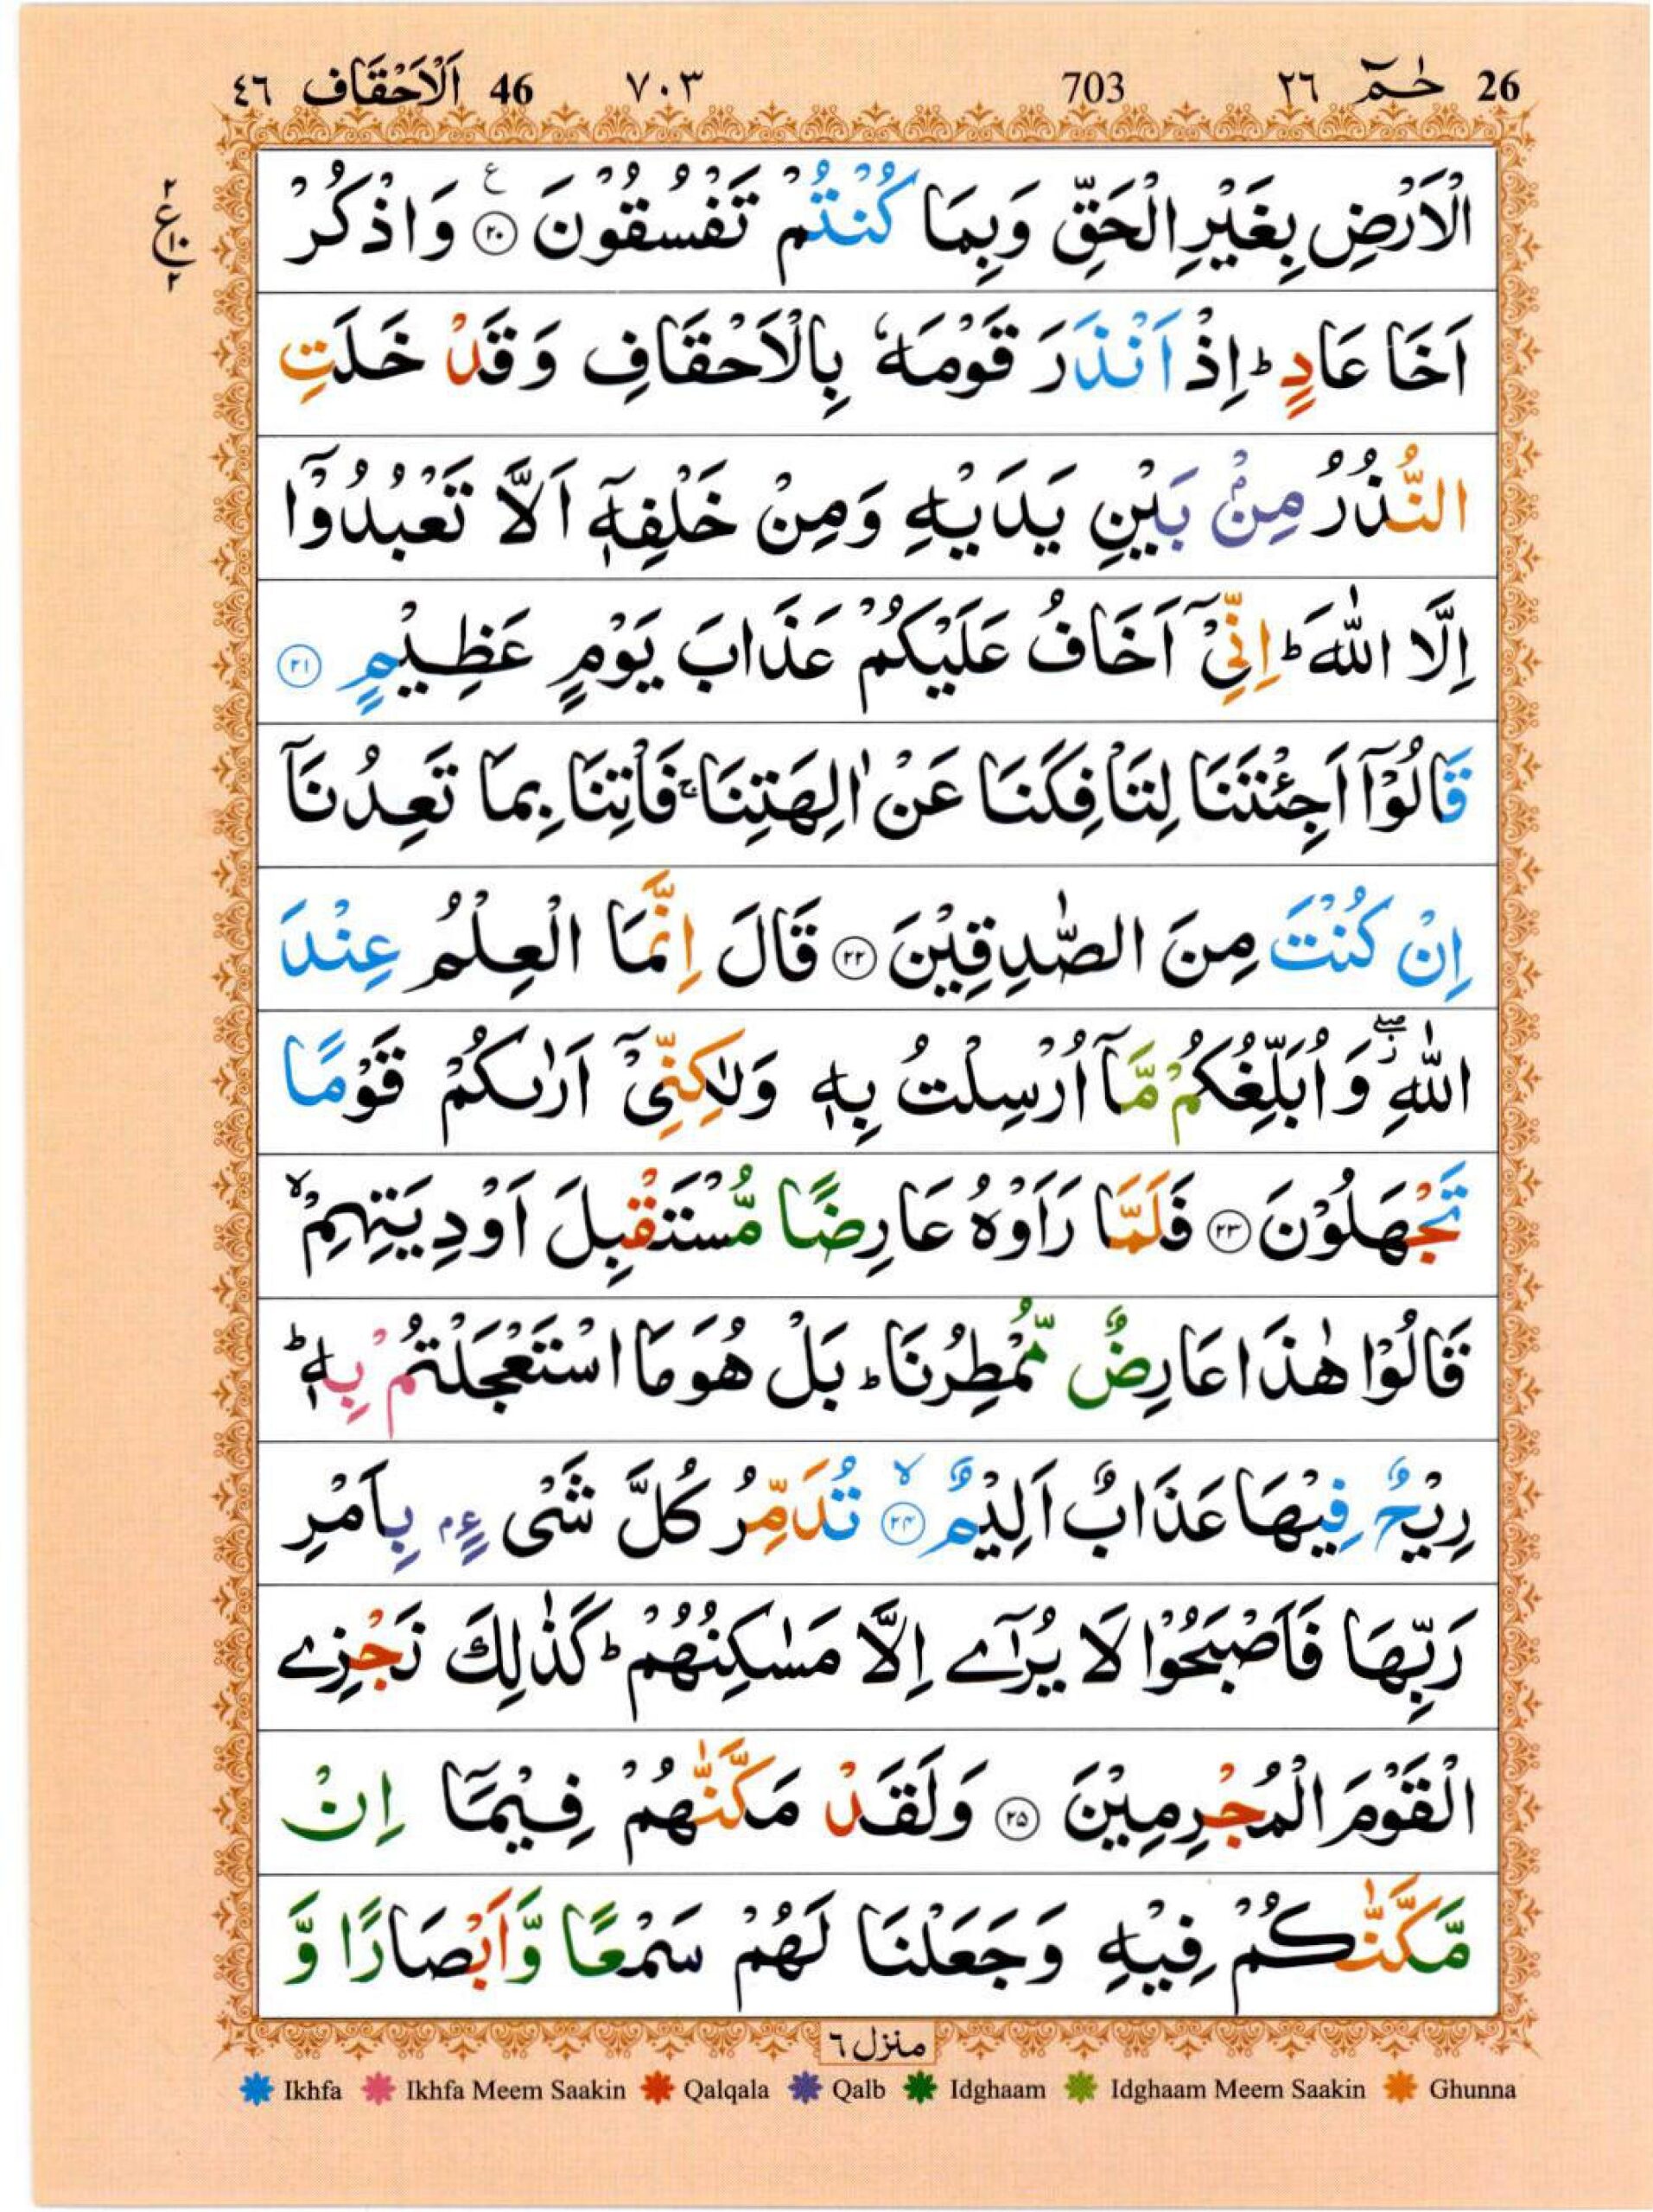 26 حٰمٓ ٢٦ 703 ٧٠٣ 46 اَلْاَحْقَاف ٤٦
الْاَرْضِ بِغَيْرِ الْحَقِّ وَبِمَا كُنْتُمْ تَفْسُقُوْنَ ۧ‏﴿۲۰﴾ وَاذْكُرْ
٢
ع
١٠
٢
اَخَا عَادٍ ؕ اِذْ اَنْذَرَ قَوْمَهٗ بِالْاَحْقَافِ وَقَدْ خَلَتِ
النُّذُرُ مِنْۢ بَيْنِ يَدَيْهِ وَمِنْ خَلْفِهٖۤ اَلَّا تَعْبُدُوْۤا
اِلَّا اللّٰهَ ؕ اِنِّىْۤ اَخَافُ عَلَيْكُمْ عَذَابَ يَوْمٍ عَظِيْمٍ ﴿۲۱﴾
قَالُوْۤا اَجِئْتَنَا لِتَاْفِكَنَا عَنْ اٰلِهَتِنَا ۚ فَاْتِنَا بِمَا تَعِدُنَاۤ
اِنْ كُنْتَ مِنَ الصّٰدِقِيْنَ ﴿۲۲﴾ قَالَ اِنَّمَا الْعِلْمُ عِنْدَ
اللّٰهِ ۖ٘ وَ اُبَلِّغُكُمْ مَّاۤ اُرْسِلْتُ بِهٖ وَلٰكِنِّىْۤ اَرٰٮكُمْ قَوْمًا
تَجْهَلُوْنَ ﴿۲۳﴾ فَلَمَّا رَاَوْهُ عَارِضًا مُّسْتَقْبِلَ اَوْدِيَتِهِمْ ۙ
قَالُوْا هٰذَا عَارِضٌ مُّمْطِرُنَا ؕ بَلْ هُوَ مَا اسْتَعْجَلْتُمْ بِهٖ ؕ
رِيْحٌ فِيْهَا عَذَابٌ اَلِيْمٌ ۙ‏﴿۲۴﴾ تُدَمِّرُ كُلَّ شَىْءٍۢ بِاَمْرِ
رَبِّهَا فَاَصْبَحُوْا لَا يُرٰٓى اِلَّا مَسٰكِنُهُمْ ؕ كَذٰلِكَ نَجْزِى
الْقَوْمَ الْمُجْرِمِيْنَ ﴿۲۵﴾ وَلَقَدْ مَكَّنّٰهُمْ فِيْمَاۤ اِنْ
مَّكَّنّٰكُمْ فِيْهِ وَجَعَلْنَا لَهُمْ سَمْعًا وَّاَبْصَارًا وَّ
منزل ٦
Ikhfa Ikhfa Meem Saakin Qalqala Qalb Idghaam Idghaam Meem Saakin Ghunna